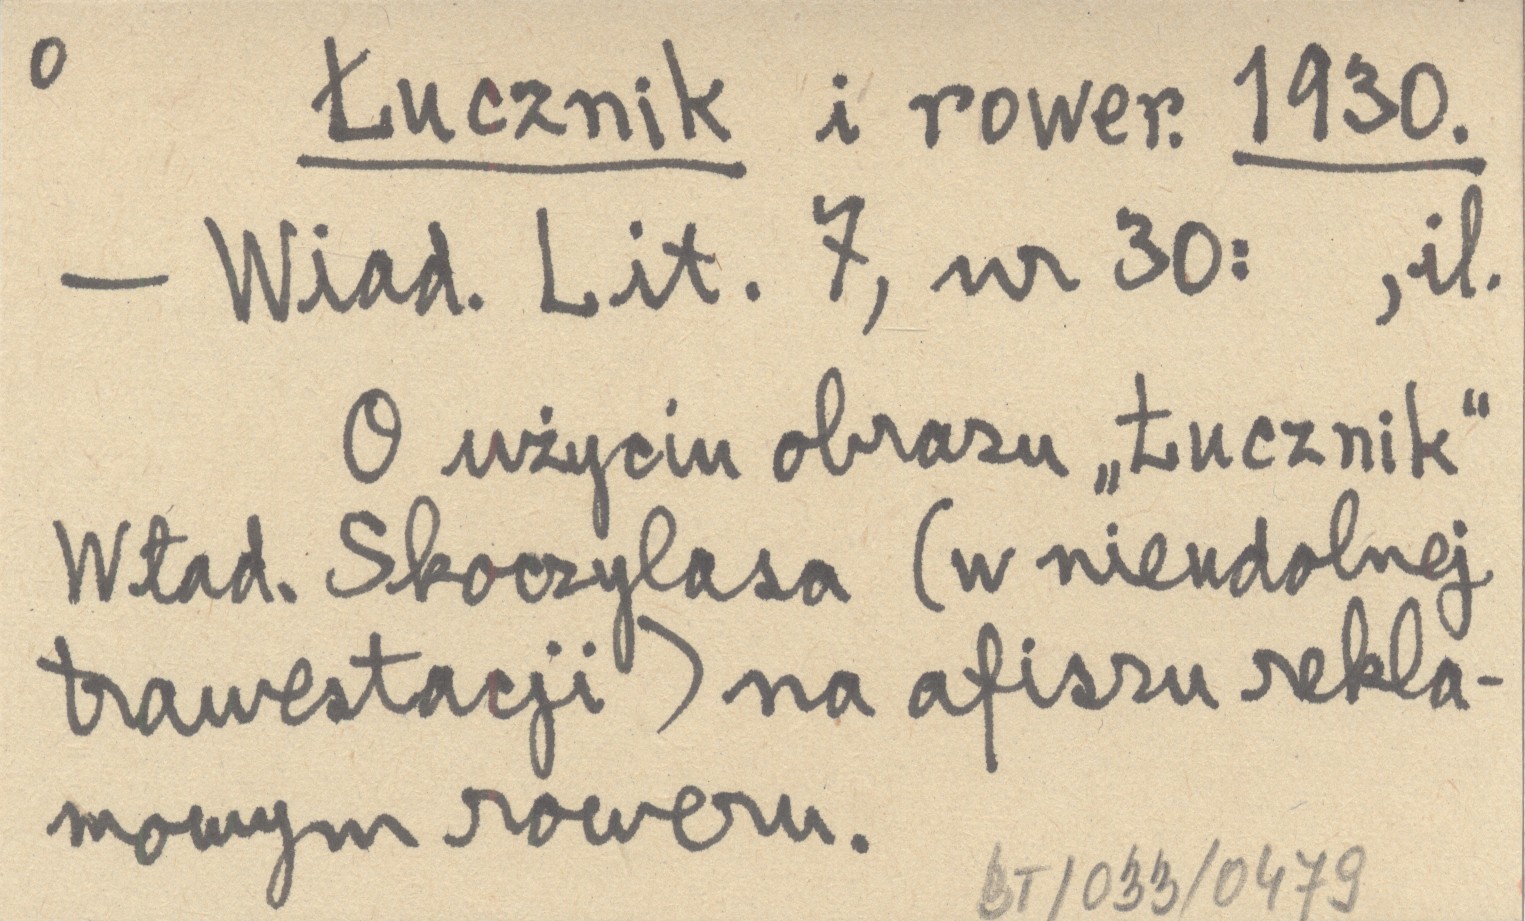 o Łucznik i rower. 1930.
— Wiad. Lit. 7, nr 30: , il.
O użyciu obrazu „Łucznik“
Wład. Skoczylasa (w nieudolnej
trawestacji) na afiszu rekla-
mowym roweru.
BT/033/0479